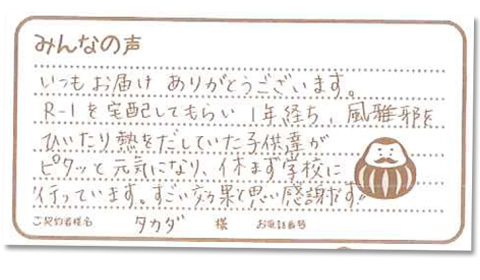 みんなの声
いつもお届けありがとうございます。
R-1を宅配してもらい1年経ち、風雅邪を
ひいたり熱をだしていた子供達が
ピタッと元気になり、休まず学校に
行っています。すごい効果と思い感謝です!!
ご契約者様名 タカダ 様 お電話番号